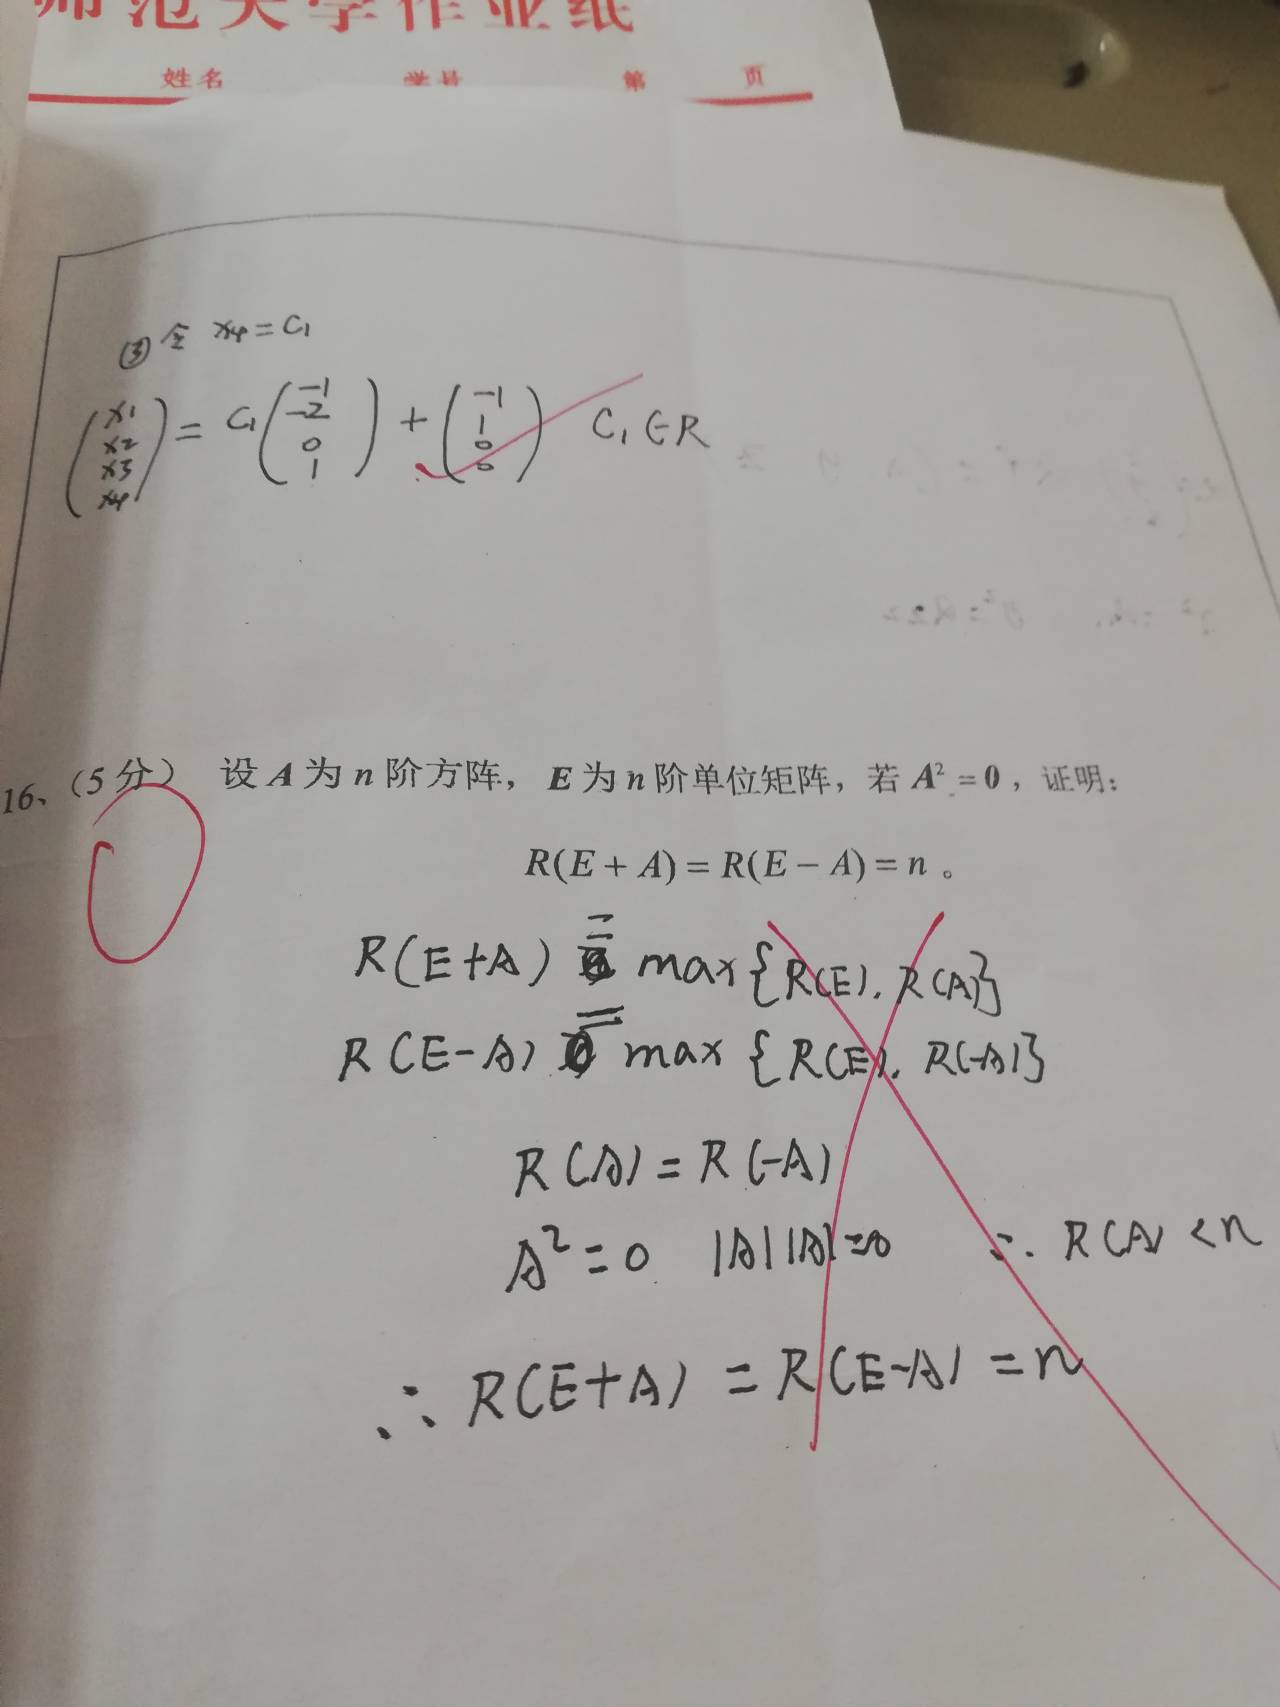 师范大学作业纸
姓名 学号 第 页
③令 x4=C1
(x1 x2 x3 x4) = C1 (-1 -2 0 1) + (-1 1 0 0) C1∈R
16、(5分) 设 A 为 n 阶方阵，E 为 n 阶单位矩阵，若 A² = 0，证明：
R(E + A) = R(E − A) = n 。
R(E+A) = max{R(E), R(A)}
R(E-A) = max{R(E), R(-A)}
R(A) = R(-A)
A²=0 |A||A|=0 ∴ R(A) < n
∴ R(E+A) = R(E-A) = n